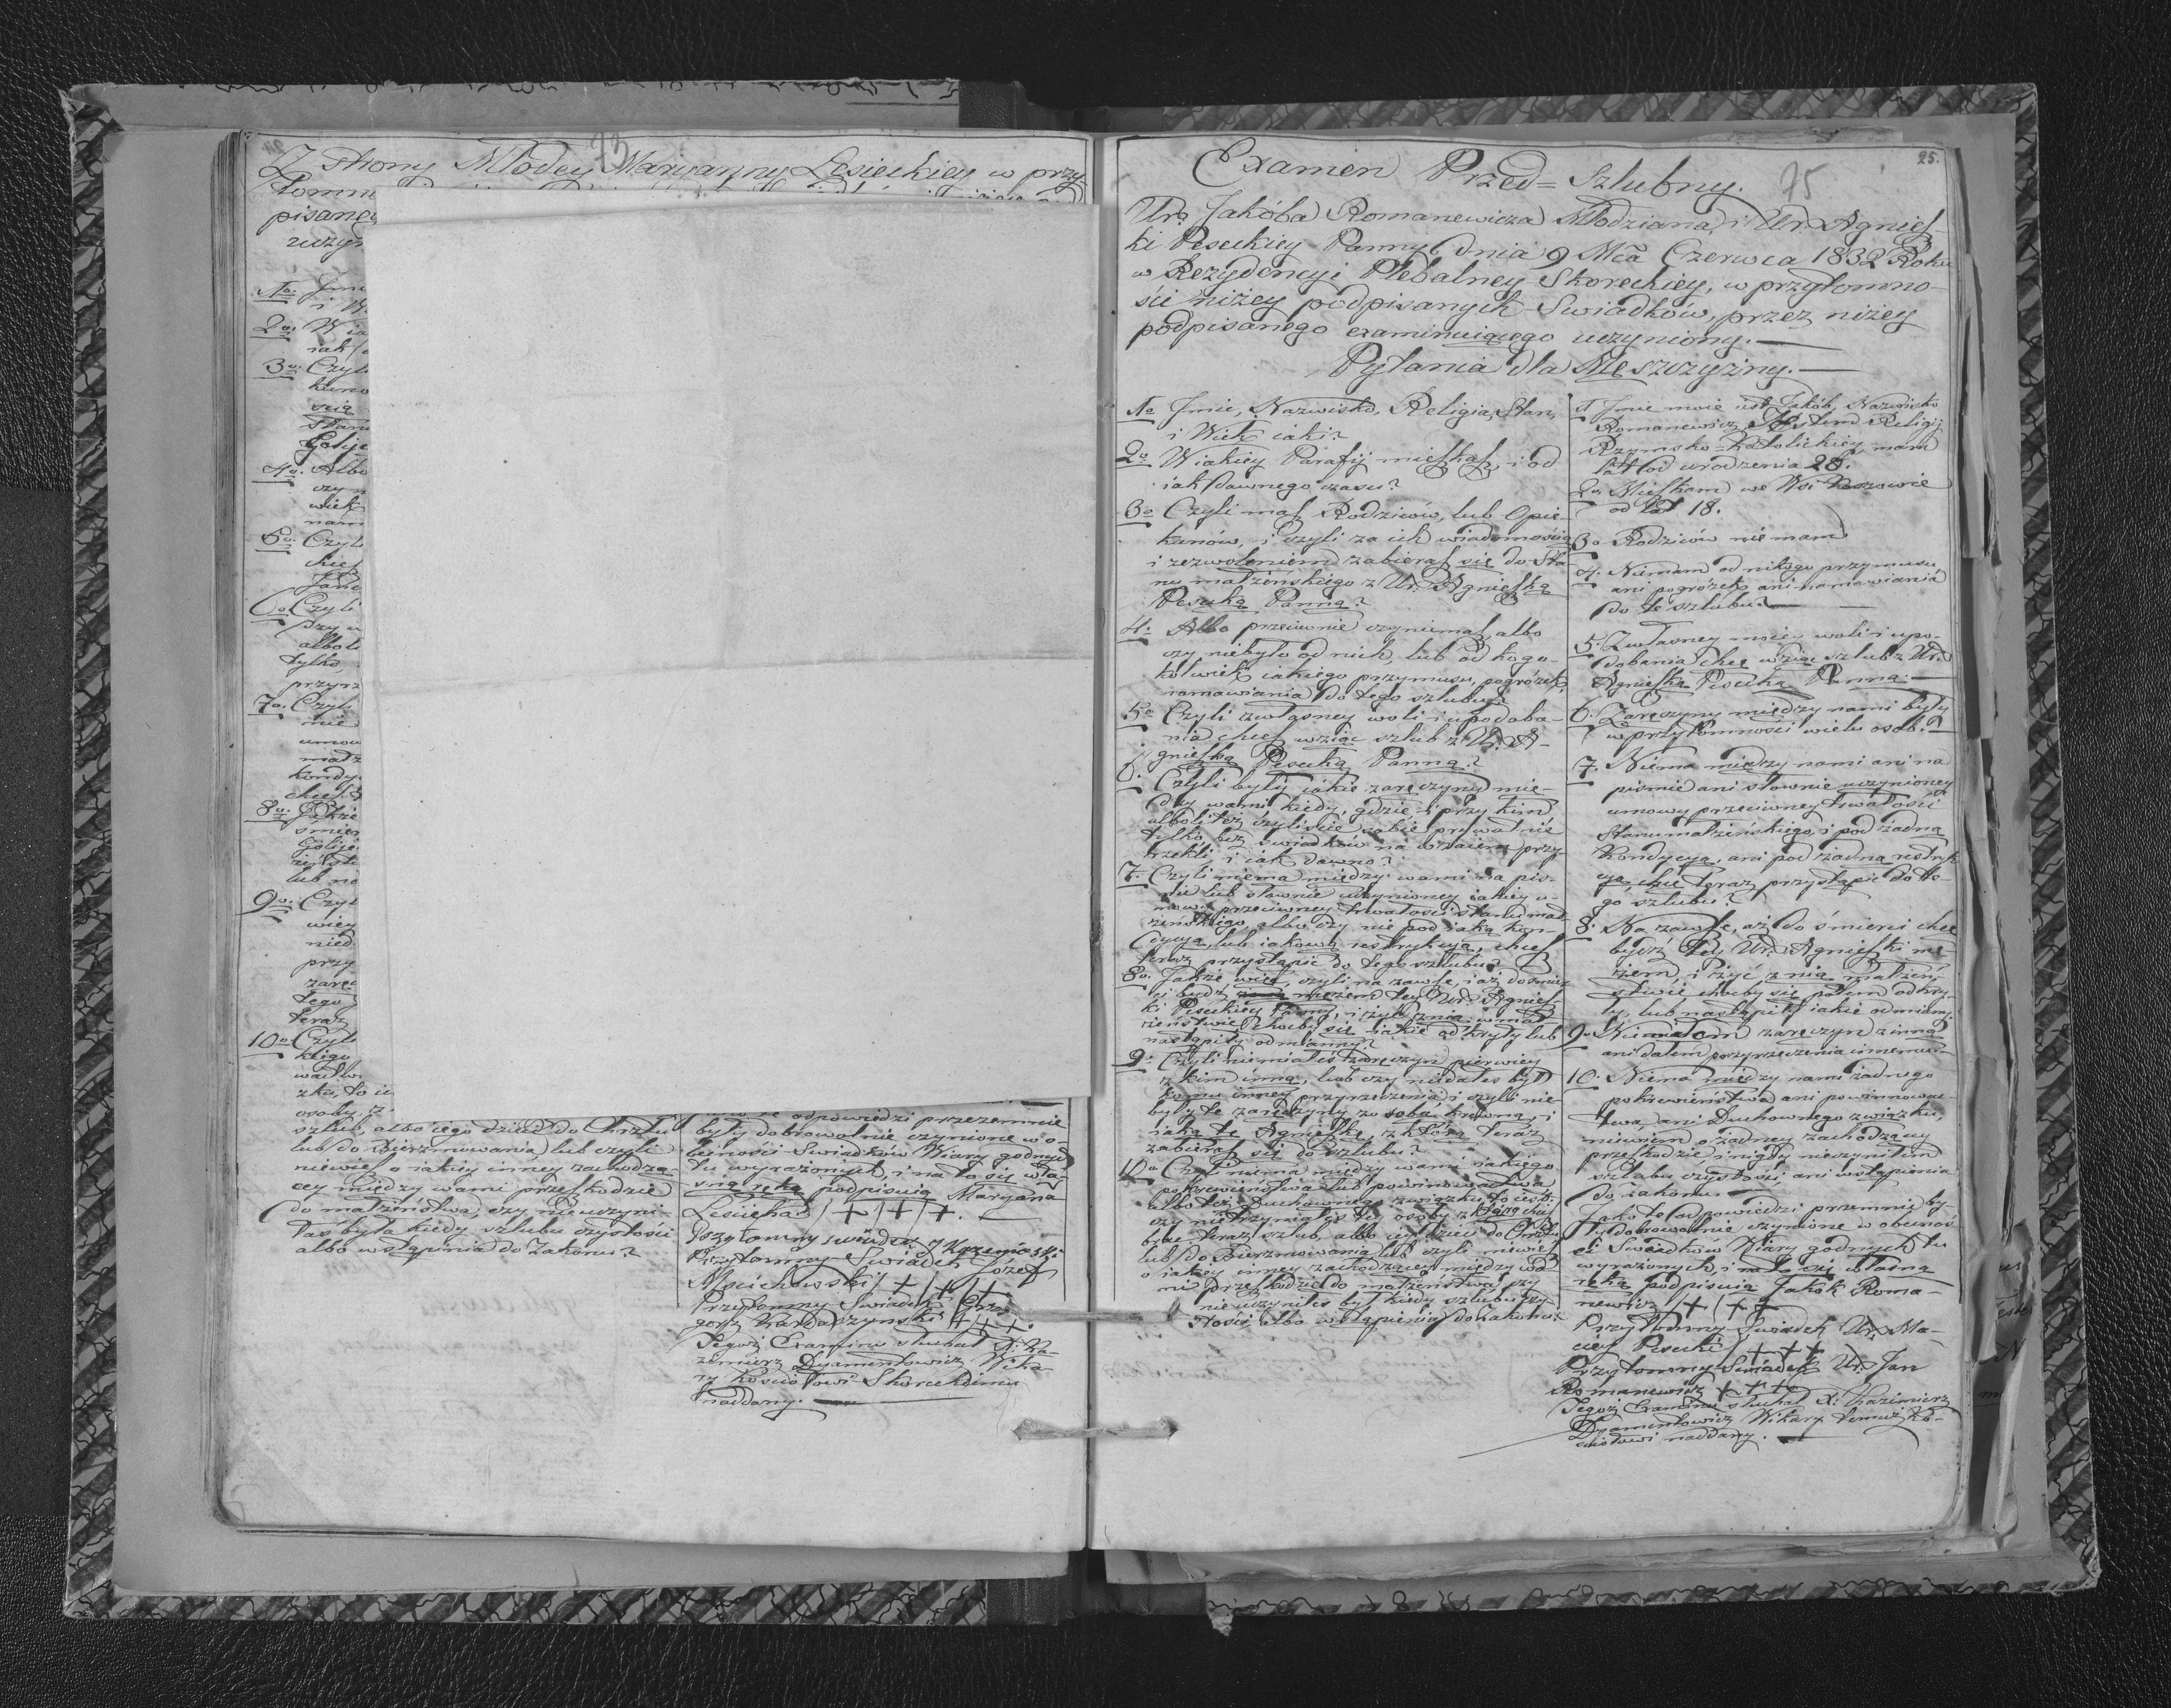 73
Z strony Młodey Maryanny Lesieckiey w przy-
tomn
pisaney
uczyn
1o. Jmie
2o. W ia
iak
3o. Czyli
4o. Albo
czy n
wiek
nam
5o. Czyli
chces
6o. Czyli
tylko
przyrz
7o. Czyli
nie
umow
małż
kondy
chces
8o. Jakże
śmier
lub na
9o. Czyl
wiey
nied
przy
zaręc
tego
teraz
10o. Czyli
osoby, z
szlub, albo iego dzieci do Chrztu
lub do Bierzmowania, lub czyli
niewies o iakiey inney zachodzą-
cey między wami przeszkodzie
do małżeństwa, czy nieuczyni-
łaś była kiedy szlubu czystości
albo wstąpienia do Zakonu?
odpowiedzi przezemnie
były dobrowolnie czynione w o-
becności Swiadków Wiary godnych
tu wyrażonych, i na to się wła-
sną ręką podpisuię Maryana
Lesiecka / + / + / +.
Przytomny swiadek J Korzeniowski
Przytomny Swiadek Józef
Mocichowski / + / + / +
Przytomny Swiadek Grze-
gorz Kardaszynski + / + / +.
Tegoż Examinu słuchał X: Ka-
zimierz Dyamentowicz Wika-
ry Kościołowi Skoreckiemu
naddany.
25.
75
Examen Przed=Szlubny.
Ur: Jakóba Romanewicza Młodziana, i Ur. Agnies-
ki Peseckiey Panny, dnia 9 Mca Czerwca 1832 Roku
w Rezydencyi Plebalney Skoreckiey, w przytomno-
ści niżey podpisanych Swiadków, przez niżey
podpisanego examinuiącego uczyniony.
Pytania dla Męszczyzny.
1o Jmie, Nazwisko, Religia, Stan,
i Wiek iaki?
2o W iakiey Parafij mieszkasz, i od
iak dawnego czasu?
3o Czyli masz Rodziców, lub Opie-
kunów, i czyli za ich wiadomością
i zezwoleniem zabierasz się do Sta-
nu małżeńskiego z Ur. Agnieszką
Pesecką Panną?
4o Albo przeciwnie czynisz, albo
czy niebyło od nich, lub od kogo-
kolwiek iakiego przymusu, pogróżek,
namawiania do tego szlubu?
5o Czyli zwłasney woli i upodoba-
nia chcesz wziąc szlub z Ur. A-
gnieszką Pesecką Panną?
6. Czyli były iakie zaręczyny mie-
dzy wami, kiedy, gdzie, i przy kim
alboliteż czyliście sobie prywatnie
tylko bez swiadków na wzaiem przy-
rzekli, i iak dawno?
7. Czyli niema między wami na pis-
mie lub słownie uczynioney iakiey u-
mowy przeciwney trwałości stanu mał-
żeńskiego, albo czy nie pod iaką kon-
dycyą, lub iakową restrykcyą, chces
teraz przystąpic do tego szlubu?
8o. Jakże więc, czyli na zawsze, i aż do śmier-
ci bydź mężem tey Ur. Agniesz-
ki Peseckiey Panny, i żyć z nią w mał-
żeństwie, choćby się iakie odkryły lub
nastąpiły odmiany?
9o Czyli niemiałeś zaręczyn pierwiey
z kim inną, lub czy niedałes był
komu inney przyrzeczenia, i czyli nie-
były te zaręczyny ze sobą krewną, i
iaką tę Agnieszkę, z którą teraz
zabierasz się do szlubu?
10o Czyli niema między wami iakiego
pokrewieństwa lub powinowactwa
albo też Duchownego związku, to iest:
czy nietrzymałeś tey osoby z którą chces
brać teraz szlub, albo iey dzieci do Chrztu
lub do Bierzmowania, lub czyli niewies
o iakiey inney zachodzącey między wa-
mi przeszkodzie do małżeństwa, czy
nieuczyniłes był kiedy szlubu czy-
stości albo wstąpienia do Zakonu?
1. Jmie moie iest Jakób, Nazwisko
Romanewicz, Jestem Religij
Rzymsko-Katolickiey, mam
lat od urodzenia 28.
2o. Mieszkam we Wsi
od lat 18.
3o Rodziców nie mam
4. Niemam od nikogo przymusu,
ani pogróżek ani namawiania
do te szlubu.
5. Zwłasney moiey woli i upo-
dobania chcę wziąc szlub z Ur.
Agnieszką Pesecką Panną.
6. Zaręczyny między nami były
w przytomności wielu osob.
7. Niema między nami ani na
pismie ani słownie uczynioney
umowy przeciwney trwałości
Stanu małżeńskiego, i pod żadną
Kondycyą, ani pod żadną restryk-
cyą, chcę teraz przystąpic do te-
go szlubu.
8. Na zawsze, aż do śmierci chcę
bydź tey Ur. Agnieszki mę-
żem, i żyć z nią małżeń-
stwie, choćby się potem odkry-
ły, lub nastąpiły iakie odmiany.
9o Niemiałem zaręczyn z inną
ani dałem przyrzeczenia innemu.
10. Niema między nami żadnego
pokrewieństwa ani powinnowac-
twa, ani Duchownego związku,
niewiem o żadney zachodzącey
przeszkodzie i nigdy nieczyniłem
szlubu czystości, ani wstąpienia
do Zakonu.
Jako te odpowiedzi przemnie by-
ły dobrowolnie czynione w obecnoś-
ci Swiadków Wiary godnych tu
wyrażonych, i na to się własną
ręką podpisuię Jakób Roma-
newicz / + / + +
Przytomny Swiadek Ur. Ma-
ciey Pesecki / + + +
Przytomny Swiadek Ur. Jan
Romanewicz + + +
Tegoż Examinu słuchał X: Kazimierz
Dyamentowicz Wikary temuż Ko-
ściołowi naddany.